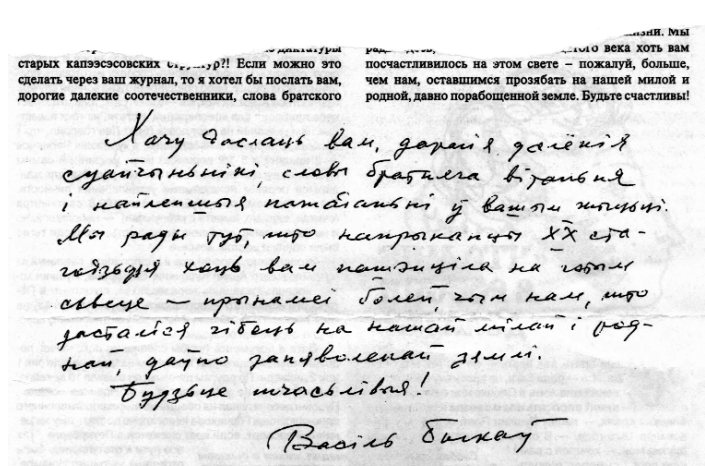 диктатуры
старых капээсэсовских структур?! Если можно это
сделать через ваш журнал, то я хотел бы послать вам,
дорогие далекие соотечественники, слова братского
Мы
века хоть вам
посчастливилось на этом свете – пожалуй, больше,
чем нам, оставшимся прозябать на нашей милой и
родной, давно порабощенной земле. Будьте счастливы!
Хачу даслаць вам, дарагія далёкія
суайчыньнікі, словы братняга вітаньня
і найлепшыя пажаданьні ў вашым жыцьці.
Мы рады тут, што напрыканцы XX ста-
годзьдзя хоць вам пашэнціла на гэтым
сьвеце — прынамсі болей, чым нам, што
засталіся гібець на нашай мілай і род-
най, даўно заняволенай зямлі.
Будзьце шчасьлівыя!
Васіль Быкаў